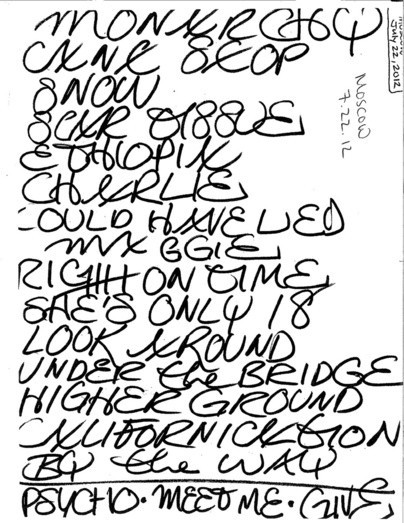 MONARCHY
CANT STOP
SNOW
SCAR TISSUE
ETHIOPIA
CHARLIE
COULD HAVE LIED
MAGGIE
RIGHT ON TIME
SHE'S ONLY 18
LOOK AROUND
UNDER the BRIDGE
HIGHER GROUND
CALIFORNICATION
BY the WAY
PSYCHO • MEET ME • GIVE
MOSCOW
7.22.12
July 22, 2012